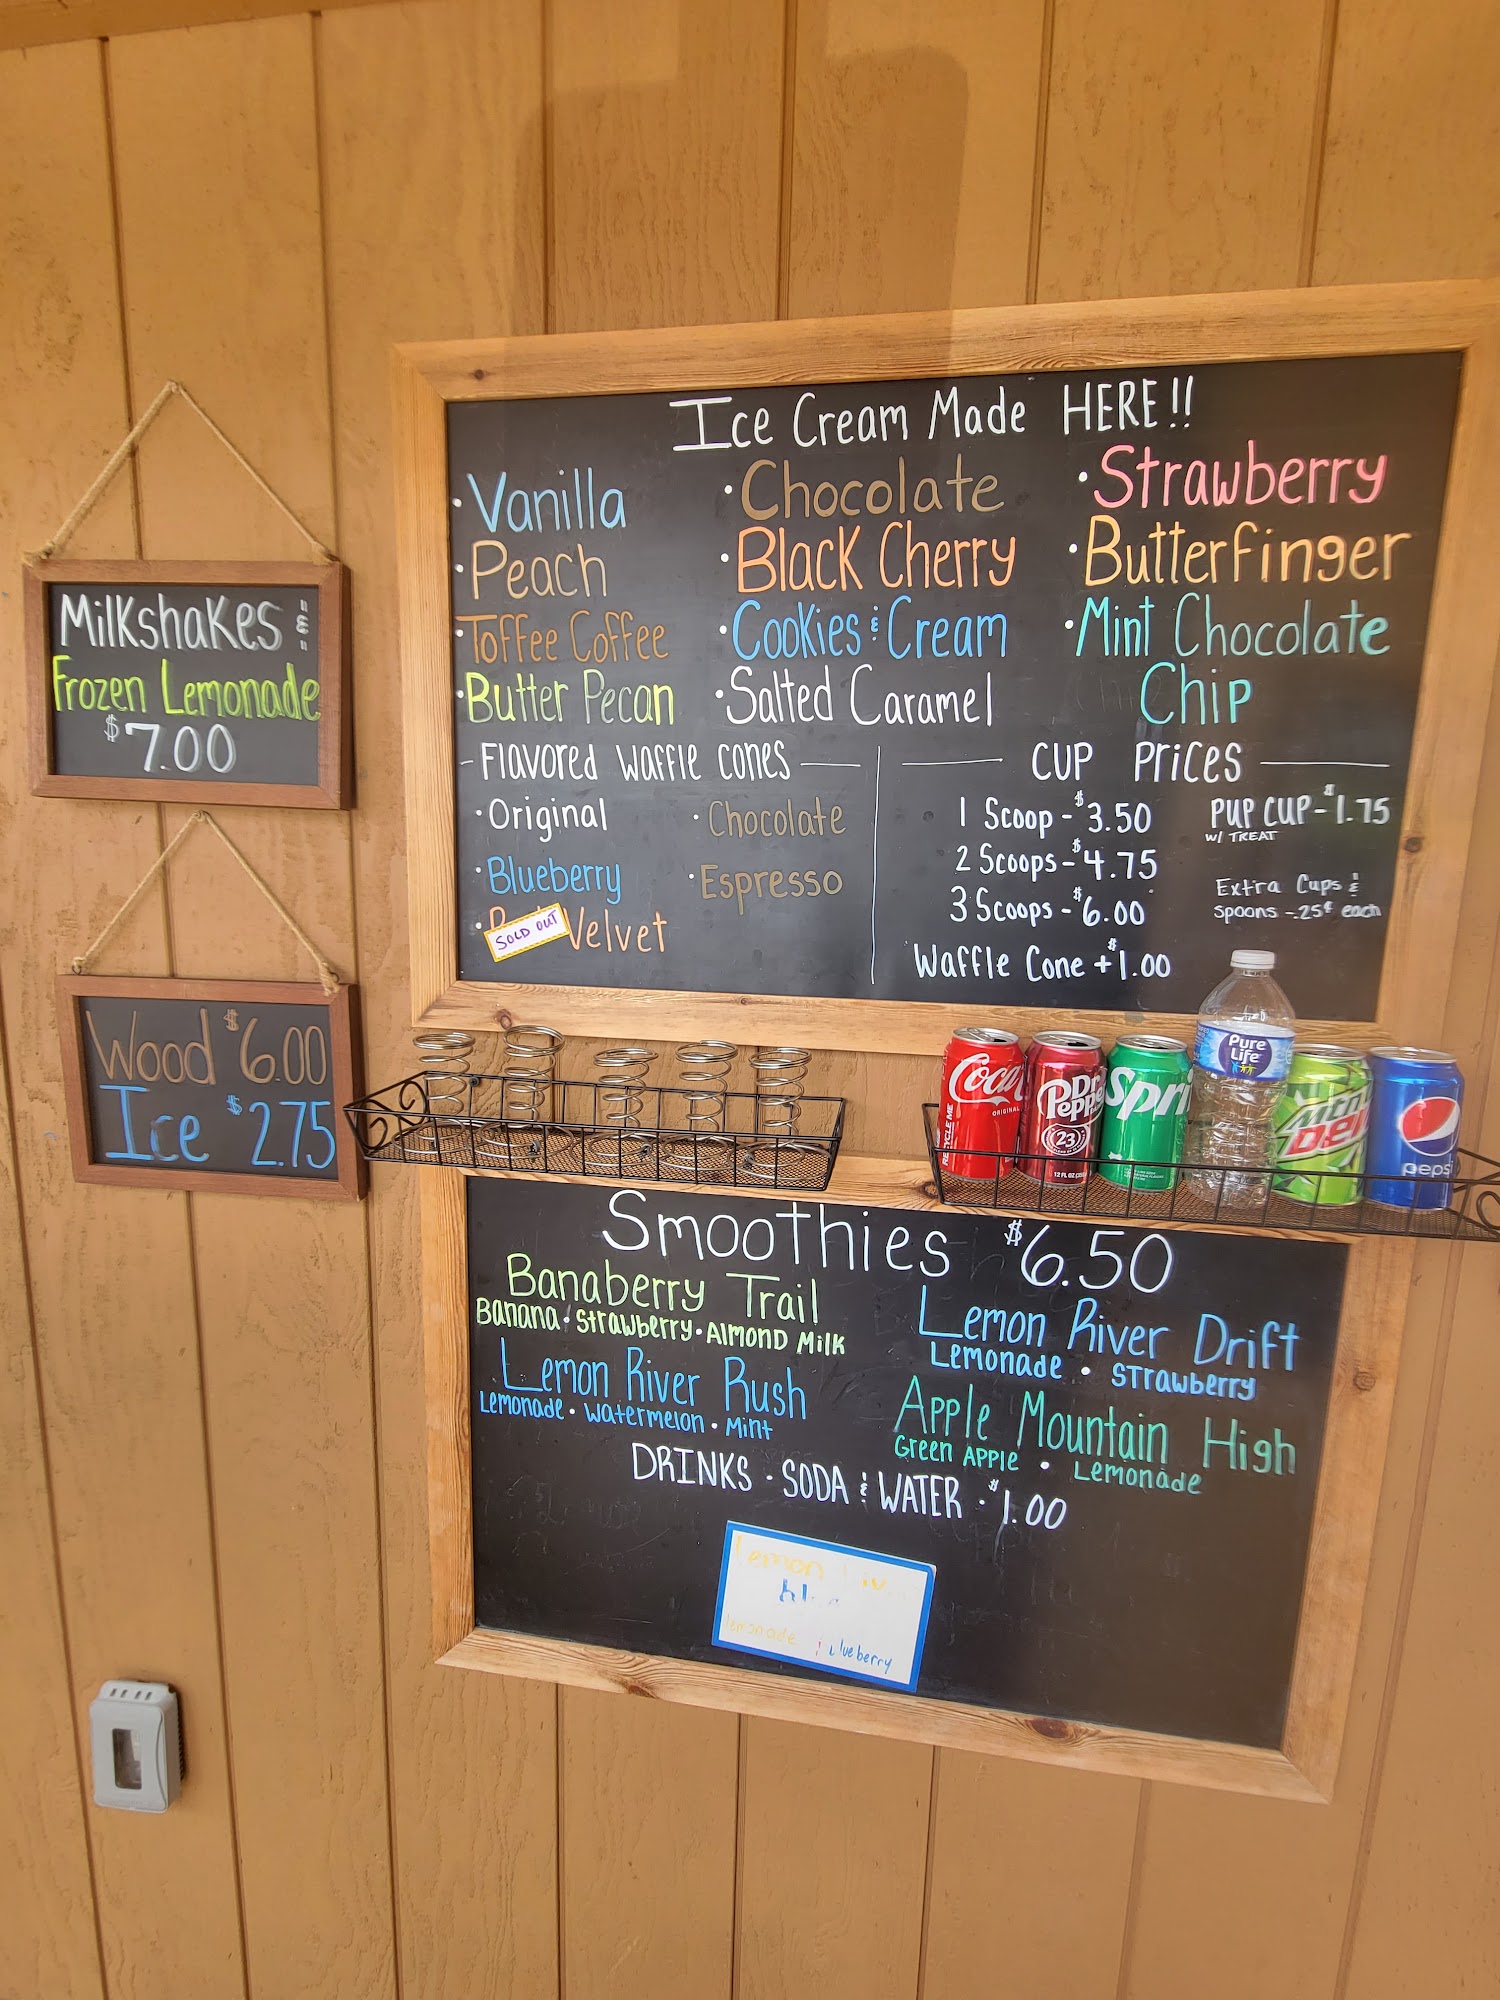 Milkshakes &
Frozen Lemonade
$7.00
Wood $6.00
Ice $2.75
Ice Cream Made HERE!!
• Vanilla • Chocolate • Strawberry
• Peach • Black Cherry • Butterfinger
• Toffee Coffee • Cookies & Cream • Mint Chocolate
• Butter Pecan • Salted Caramel Chip
- Flavored Waffle Cones —
• Original • Chocolate
• Blueberry • Espresso
• Velvet
SOLD OUT
— Cup Prices —
1 Scoop - $3.50
2 Scoops - $4.75
3 Scoops - $6.00
Waffle Cone + $1.00
Pup Cup - $1.75
w/ TREAT
Extra Cups &
Spoons - .25¢ each
Coca
ORIGINAL
RECYCLE ME
Dr Pepper
23
12 FL OZ
Spri
Pure Life
MTN DEW
pepsi
Smoothies $6.50
Banaberry Trail
Banana • Strawberry • Almond Milk
Lemon River Rush
Lemonade • Watermelon • Mint
Lemon River Drift
Lemonade • Strawberry
Apple Mountain High
Green Apple • Lemonade
DRINKS • SODA & WATER • $1.00
Lemon
lemonade lueberry